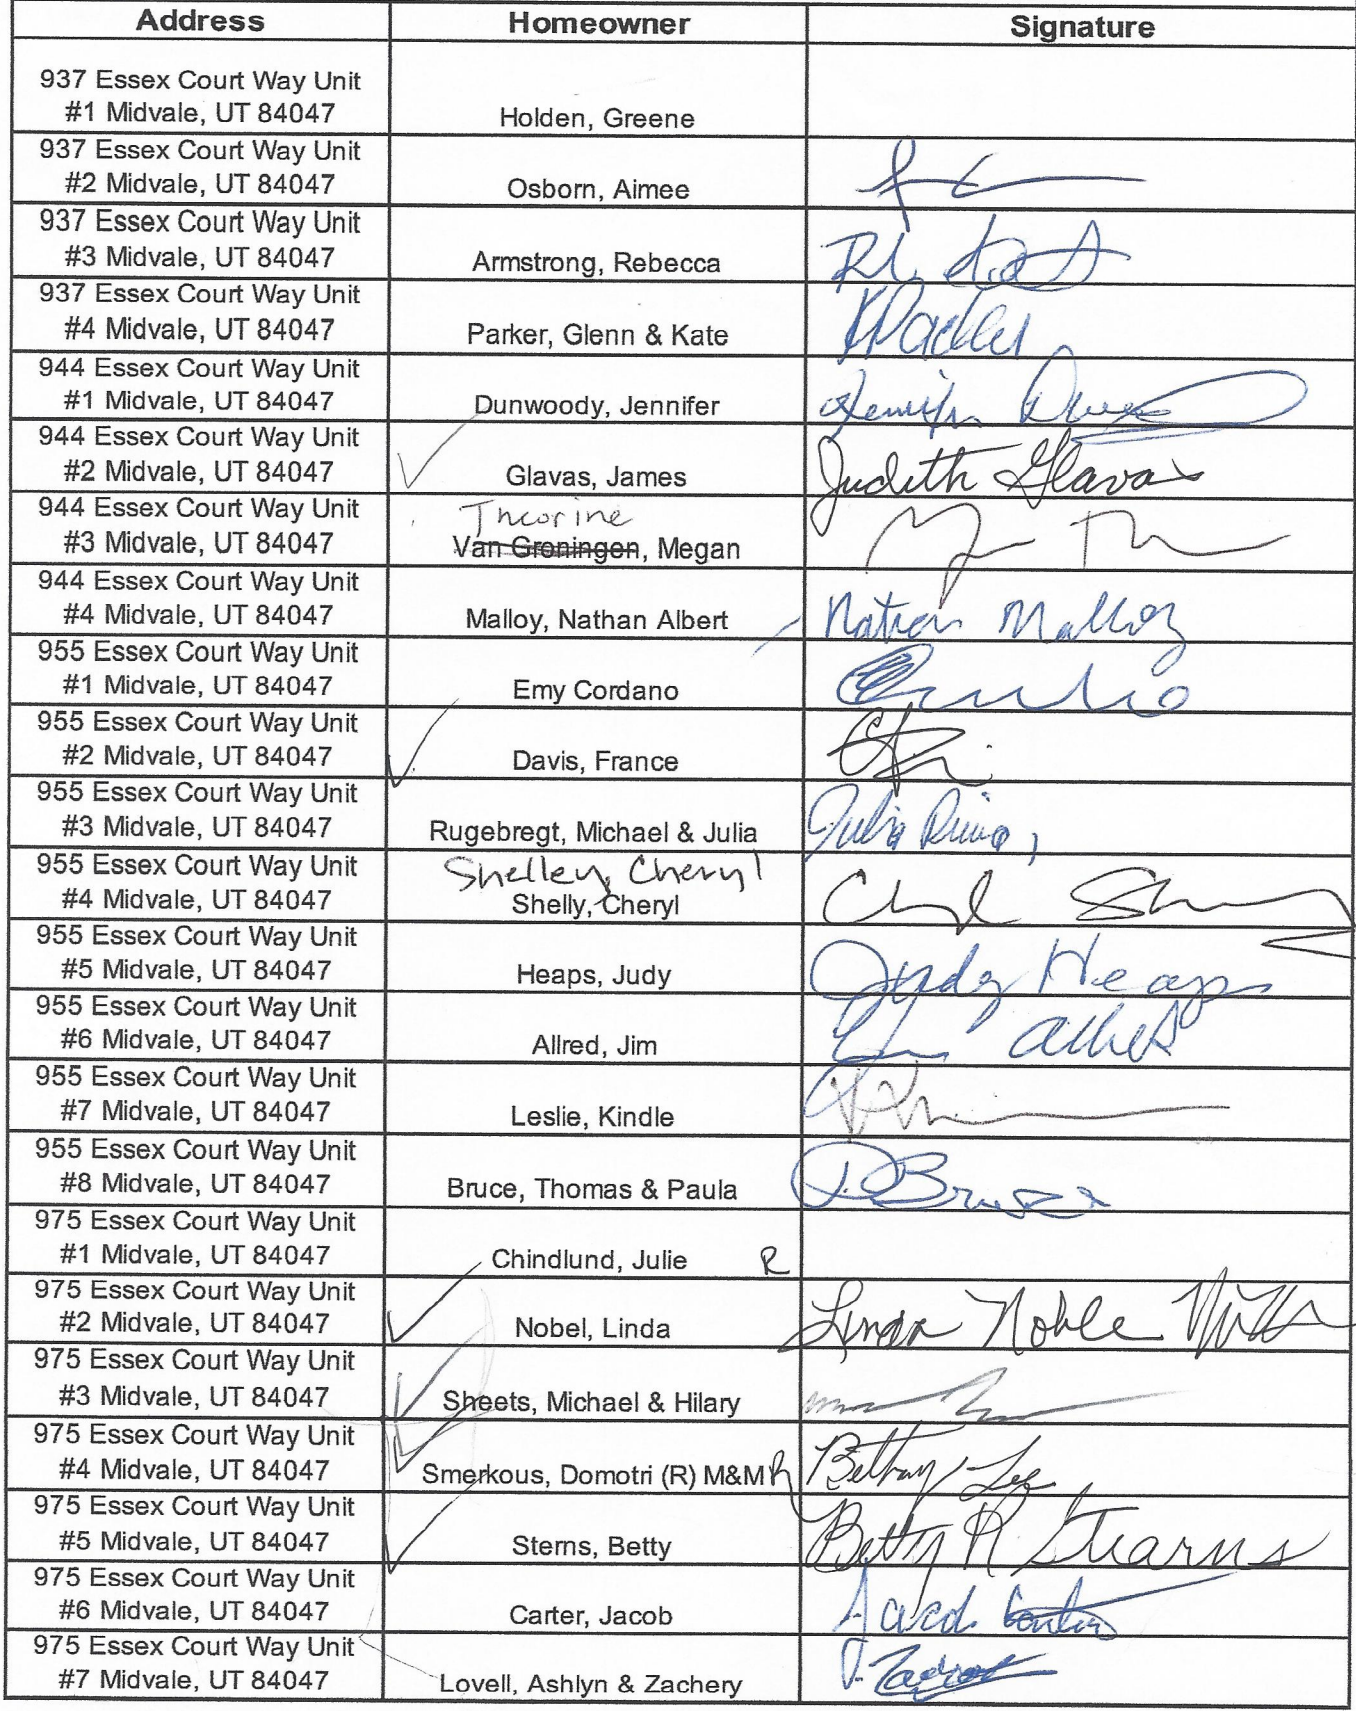 Address Homeowner Signature
937 Essex Court Way Unit
#1 Midvale, UT 84047 Holden, Greene
937 Essex Court Way Unit
#2 Midvale, UT 84047 Osborn, Aimee
937 Essex Court Way Unit
#3 Midvale, UT 84047 Armstrong, Rebecca
937 Essex Court Way Unit
#4 Midvale, UT 84047 Parker, Glenn & Kate
944 Essex Court Way Unit
#1 Midvale, UT 84047 Dunwoody, Jennifer
944 Essex Court Way Unit
#2 Midvale, UT 84047 Glavas, James Judith Glavas
944 Essex Court Way Unit
Theorine
#3 Midvale, UT 84047 Van Groningen, Megan
944 Essex Court Way Unit
#4 Midvale, UT 84047 Malloy, Nathan Albert Nathan Malloy
955 Essex Court Way Unit
#1 Midvale, UT 84047 Emy Cordano
955 Essex Court Way Unit
#2 Midvale, UT 84047 Davis, France
955 Essex Court Way Unit
#3 Midvale, UT 84047 Rugebregt, Michael & Julia Julia
955 Essex Court Way Unit Shelley, Cheryl
#4 Midvale, UT 84047 Shelly, Cheryl
955 Essex Court Way Unit
#5 Midvale, UT 84047 Heaps, Judy Judy Heaps
955 Essex Court Way Unit
#6 Midvale, UT 84047 Allred, Jim
955 Essex Court Way Unit
#7 Midvale, UT 84047 Leslie, Kindle
955 Essex Court Way Unit
#8 Midvale, UT 84047 Bruce, Thomas & Paula P Bruce
975 Essex Court Way Unit
#1 Midvale, UT 84047 Chindlund, Julie R
975 Essex Court Way Unit
#2 Midvale, UT 84047 Nobel, Linda Linda Noble
975 Essex Court Way Unit
#3 Midvale, UT 84047 Sheets, Michael & Hilary
975 Essex Court Way Unit
#4 Midvale, UT 84047 Smerkous, Domotri (R) M&M R Bethany Lee
975 Essex Court Way Unit
#5 Midvale, UT 84047 Sterns, Betty Betty R Stearns
975 Essex Court Way Unit
#6 Midvale, UT 84047 Carter, Jacob Jacob Carter
975 Essex Court Way Unit
#7 Midvale, UT 84047 Lovell, Ashlyn & Zachery